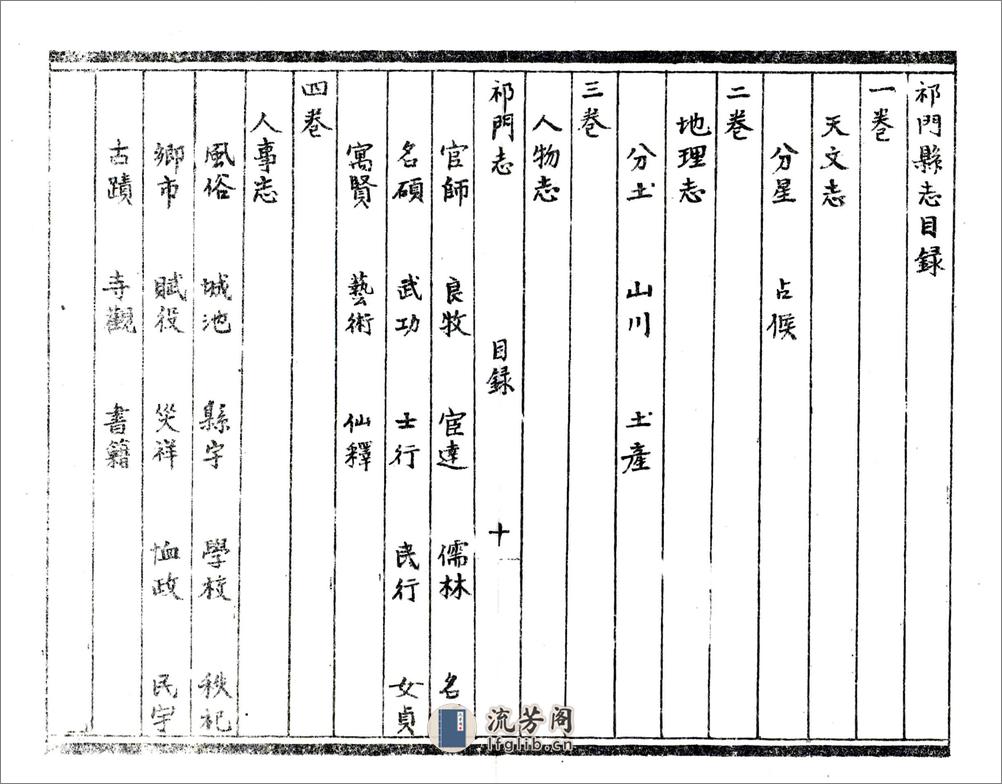 祁門縣志目録
一卷
天文志
分星 占候
二卷
地理志
分土 山川 土產
三卷
人物志
祁門志 目録 十
官師 良牧 宦達 儒林 名
名碩 武功 士行 民行 女貞
寓賢 藝術 仙釋
四卷
人事志
風俗 城池 縣宇 學校 秩祀
鄉市 賦役 災祥 恤政 民宇
古蹟 寺觀 書籍
流芳阁
lfglib.cn